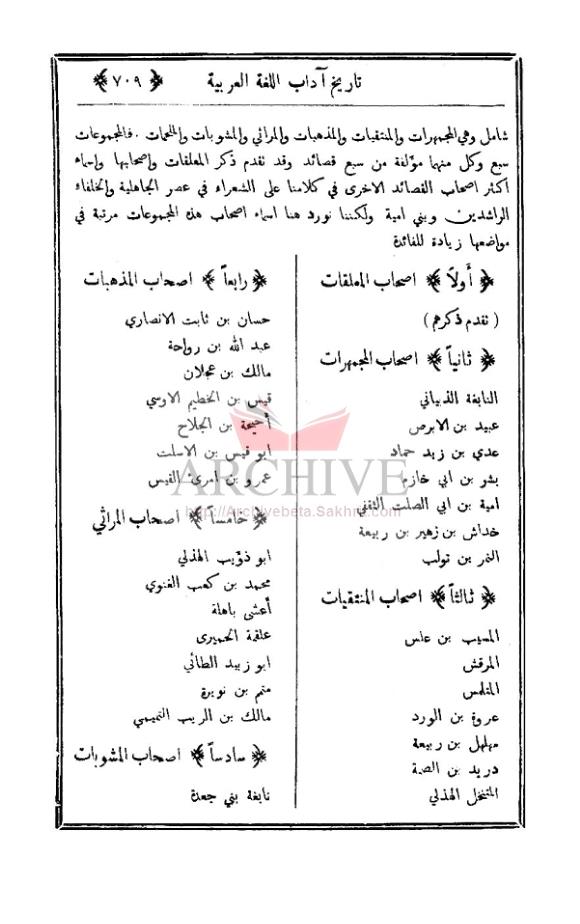 تاريخ آداب اللغة العربية ﴿ ٧٠٩ ﴾
شامل وهي المجمهرات والمنتقيات والمذهبات والمراثي والمشوبات والملحمات . فالمجموعات
سبع وكل منها مؤلفة من سبع قصائد وقد تقدم ذكر المعلقات واصحابها واسماء
اكثر اصحاب القصائد الاخرى في كلامنا على الشعراء في عصر الجاهلية والخلفاء
الراشدين وبني امية ولكننا نورد هنا اسماء اصحاب هذه المجموعات مرتبة في
مواضعها زيادة للفائدة
﴿ أولاً ﴾ اصحاب المعلقات
( تقدم ذكرهم )
﴿ ثانياً ﴾ اصحاب المجمهرات
النابغة الذبياني
عبيد بن الابرص
عدي بن زيد حماد
بشر بن ابي خازم
امية بن ابي الصلت الثقفي
خداش بن زهير بن ربيعة
النمر بن تولب
﴿ ثالثاً ﴾ اصحاب المنتقيات
المسيب بن علس
المرقش
المتلمس
عروة بن الورد
مهلهل بن ربيعة
دريد بن الصمة
المتنخل الهذلي
﴿ رابعاً ﴾ اصحاب المذهبات
حسان بن ثابت الانصاري
عبد الله بن رواحة
مالك بن عجلان
قيس بن الخطيم الاوسي
أحيحة بن الجلاح
ابو قيس بن الاسلت
عمرو بن امرئ القيس
﴿ خامساً ﴾ اصحاب المراثي
ابو ذؤيب الهذلي
محمد بن كعب الغنوي
أعشى باهلة
علقمة الحميرى
ابو زبيد الطائي
متمم بن نويرة
مالك بن الريب التميمي
﴿ سادساً ﴾ اصحاب المشوبات
نابغة بني جعدة
ARCHIVE
http://Archivebeta.Sakhrit.com